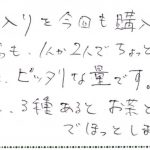 入りを今回も購入
も、1人か2人でちょっと
、ピッタリな量です。
、3種あると お茶と
でほっとしま